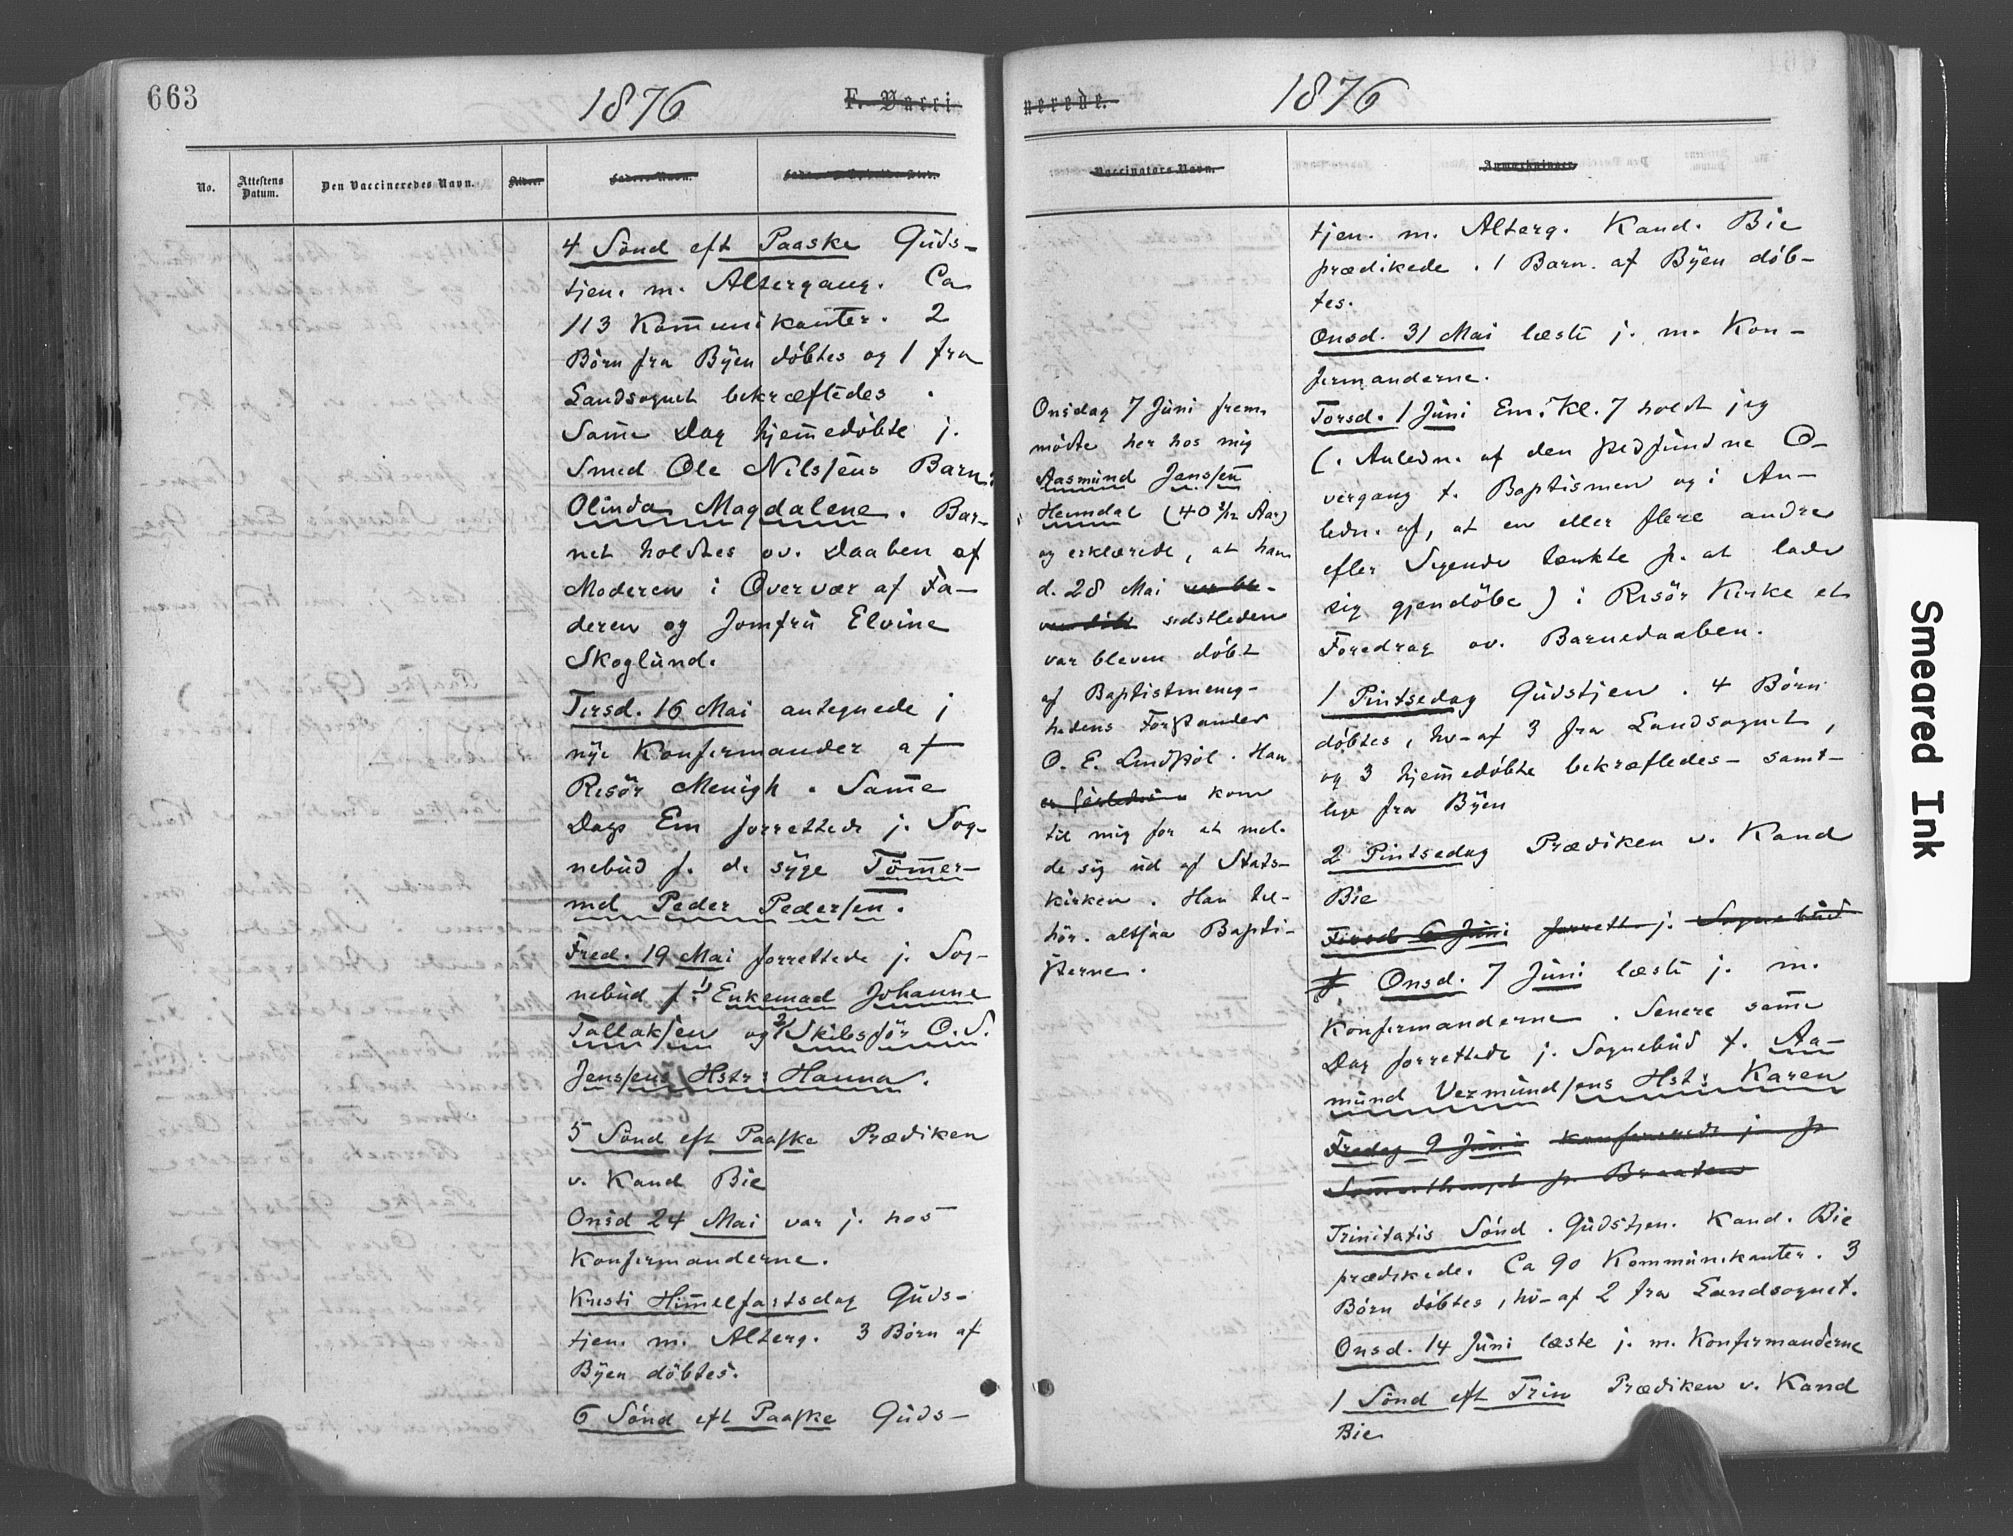 663
1876
F. Vacci
No.
Attestens Datum.
Den Vaccineredes Navn.
Alder.
4 Sönd eft Paaske Guds-
tjen. m. Altergang. Ca
113 Kommunikanter. 2
Børn fra Byen døbtes og 1 fra
Landsognet bekræftedes.
Samme Dag hjemmedøbte j.
Smed Ole Nilssens Barn:
Olinda Magdalene. Bar-
net holdtes ov. Daaben af
Moderen i Overvær af Fa-
deren og Jomfru Elvine
Skoglund.
Tirsd. 16 Mai antegnede j
nye Konfirmander af
Risör Menigh. Samme
Dags Em forrettede j. Sog-
nebud f. d. syge Tömmer-
md Peder Pedersen.
Fred. 19 Mai forrettede j. Sog-
nebud f. 1/ Enkemad Johanne
Tallaksen og 2/ Skibsför O. S.
Jenssens Hstr: Hanna.
5 Sönd eft Paaske Prædiken
v. Kand Bie
Onsd 24 Mai var j. hos
Konfirmanderne.
Kristi Himmelfartsdag Guds-
tjen. m. Alterg. 3 Børn af
Byen döbtes.
6 Sönd eft Paaske Guds-
1876
nerede.
Vaccinators Navn.
Anmærkninger.
Onsdag 7 Juni frem-
mödte her hos mig
Aasmund Jenssen
Heimdal (40 Aar)
og erklærede, at han
d. 28 Mai
sidstleden
var bleven døbt
af Baptistmenig-
hedens Forstander
O. E. Lindsöl. Han
kom
til mig for at mel-
de sig ud af Stats-
kirken. Han til-
hör. altsaa Bapti-
sterne.
tjen. m. Alterg. Kand. Bie
prædikede. 1 Barn af Byen döb-
tes.
Onsd. 31 Mai læste j. m. Kon-
firmanderne.
Torsd. 1 Juni Em. Kl. 7 holdt jeg
(i Anledn. af den stedfundne O-
vergang t. Baptismen og i An-
ledn. af, at en eller flere andre
efter Sigende tænkte p. at lade
sig gjendöbe) i Risör Kirke et
Foredrag ov. Barnedaaben.
1 Pintsedag Gudstjen. 4 Børn
døbtes, hv-af 3 fra Landsognet,
og 3 hjemmedøbte bekræftedes- samt-
lige fra Byen
2 Pintsedag Prædiken v. Kand
Bie
Tirsd 6 Juni forrett. j. Sognebud
f. Onsd. 7 Juni læste j. m.
Konfirmanderne. Senere samme
Dag forrettede j. Sognebud f. Aa-
mund Vermundsens Hst: Karen
Fredag 9 Juni konfererede j. p.
Trinitatis Sönd. Gudstjen. Kand. Bie
prædikede. Ca 90 Kommunikanter. 3
Börn döbtes, hv-af 2 fra Landsognet.
Onsd. 14 Juni læste j. m. Konfirmanderne
1 Sönd eft Trin Prædiken v. Kand
Bie
Smeared Ink